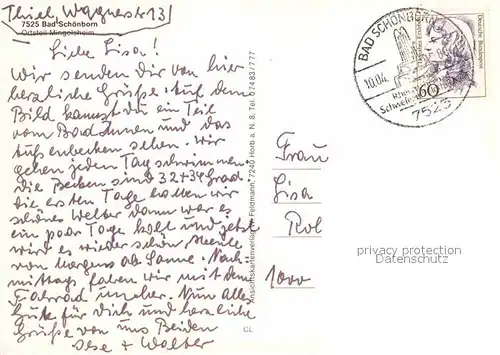 Thiel, Wagnerstr 13
7525 Bad Schönborn
Ortsteil Mingolsheim
Liebe Lisa!
Wir senden dir von hier
herzliche Grüße. Auf dem
Bild kannst du ein Teil
vom Bad Innen und das
Außenbecken sehen. Wir
gehen jeden Tag schwimmen
die Becken sind 32+34 Grad.
Die ersten Tage hatten wir
schönes Wetter dann war es
ein paar Tage kalt und jetzt
wird es wieder schön Heute
von Morgens ab Sonne. Nach-
mittags fahren wir mit dem
Fahrrad umher. Nun alles
Gute für Dich und herzliche
Grüße von uns Beiden
Ilse + Walter
CL
Ansichtskartenverlag Feldmann, 7240 Horb a. N. 8, Tel. 07483/777
BAD SCHÖNBORN
10.04.
7525
60
Deutsche Bundespost
Frau
Lisa
Rol
1000
privacy protection
Datenschutz